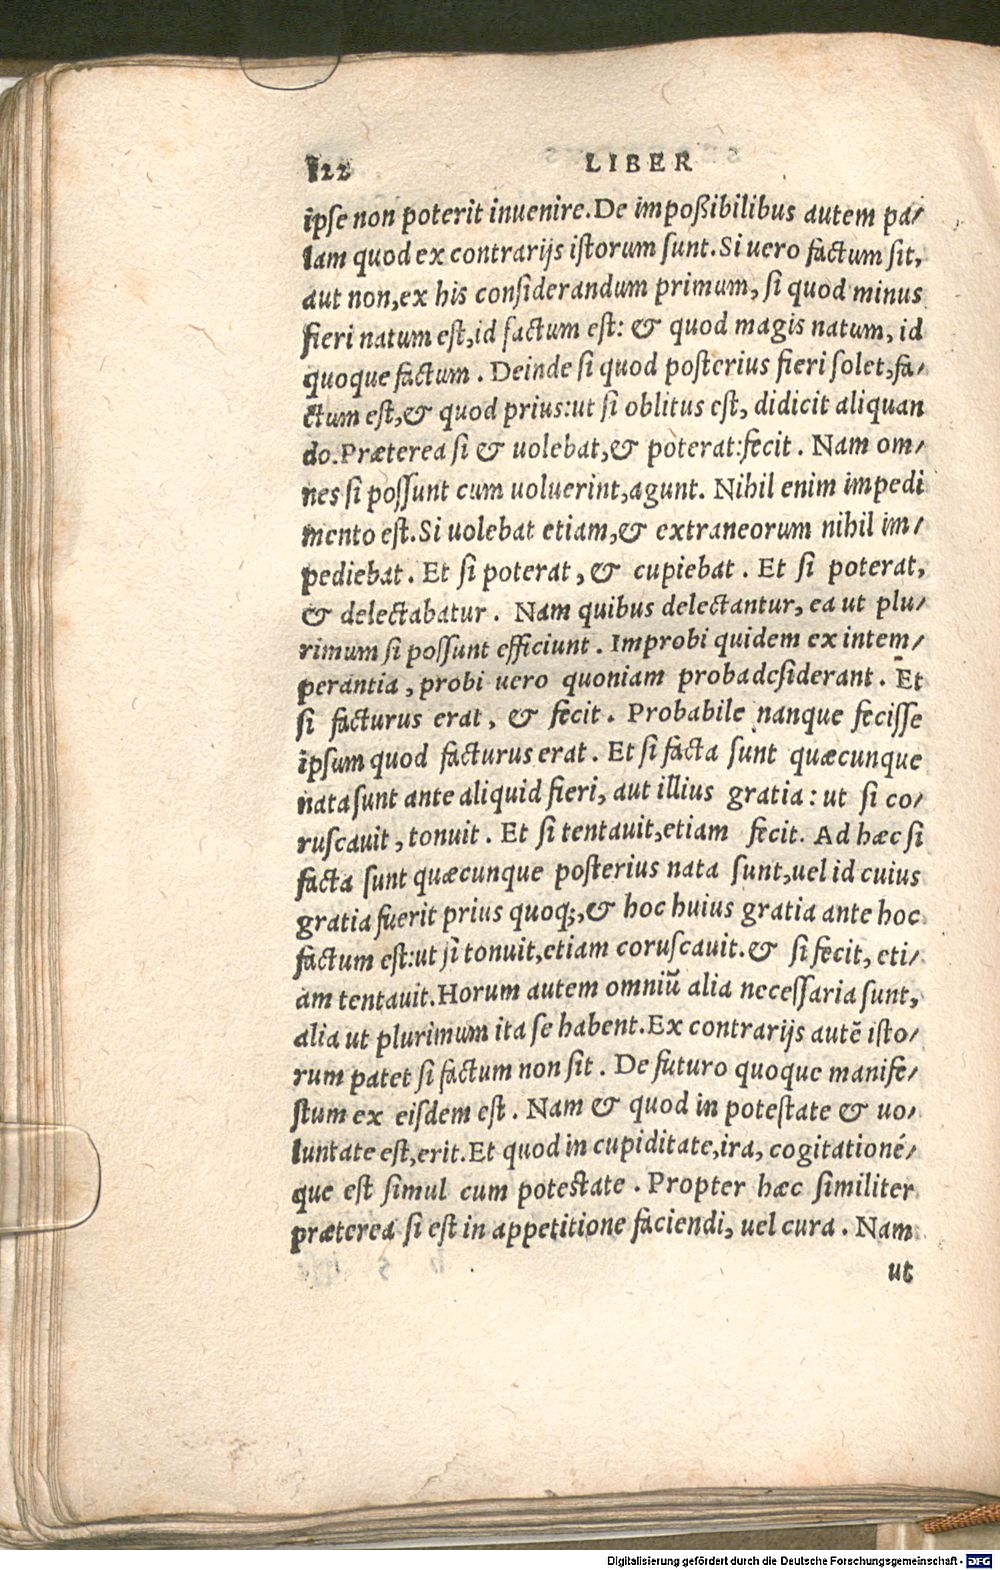 122 LIBER
ipſe non poterit inuenire. De impoßibilibus autem pa/
lam quod ex contrarijs iſtorum ſunt. Si uero factum ſit,
aut non, ex his conſiderandum primum, ſi quod minus
fieri natum eſt, id factum eſt: & quod magis natum, id
quoque factum. Deinde ſi quod poſterius fieri ſolet, fa/
ctum eſt, & quod prius: ut ſi oblitus eſt, didicit aliquan
do. Præterea ſi & uolebat, & poterat: fecit. Nam om/
nes ſi poſſunt cum uoluerint, agunt. Nihil enim impedi
mento eſt. Si uolebat etiam, & extraneorum nihil im/
pediebat. Et ſi poterat, & cupiebat. Et ſi poterat,
& delectabatur. Nam quibus delectantur, ea ut plu/
rimum ſi poſſunt efficiunt. Improbi quidem ex intem/
perantia, probi uero quoniam proba deſiderant. Et
ſi facturus erat, & fecit. Probabile nanque feciſſe
ipſum quod facturus erat. Et ſi facta ſunt quæcunque
nata ſunt ante aliquid fieri, aut illius gratia: ut ſi co/
ruſcauit, tonuit. Et ſi tentauit, etiam fecit. Ad hæc ſi
facta ſunt quæcunque poſterius nata ſunt, uel id cuius
gratia fuerit prius quoq;, & hoc huius gratia ante hoc
factum eſt: ut ſi tonuit, etiam coruſcauit. & ſi fecit, eti/
am tentauit. Horum autem omniũ alia neceſſaria ſunt,
alia ut plurimum ita ſe habent. Ex contrarijs autẽ iſto/
rum patet ſi factum non ſit. De futuro quoque manife/
ſtum ex eiſdem eſt. Nam & quod in poteſtate & uo/
luntate eſt, erit. Et quod in cupiditate, ira, cogitationé/
que eſt ſimul cum poteſtate. Propter hæc ſimiliter
præterea ſi eſt in appetitione faciendi, uel cura. Nam
ut
Digitalisierung gefördert durch die Deutsche Forschungsgemeinschaft - DFG